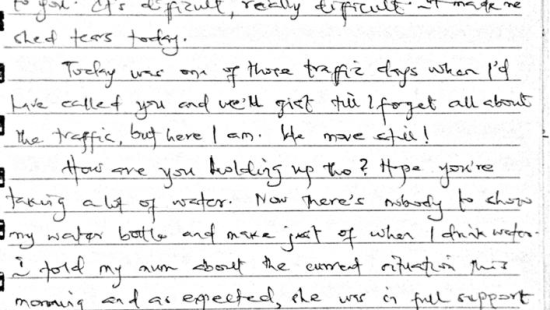 to you. It's difficult, really difficult. It made me
shed tears today.
Today was one of those traffic days when I'd
have called you and we'll gist till I forget all about
the traffic, but here I am. We move still!
How are you holding up tho? Hope you're
taking a lot of water. Now there's nobody to show
my water bottle and make jest of when I drink water.
I told my mum about the current situation this
morning and as expected, she was in full support